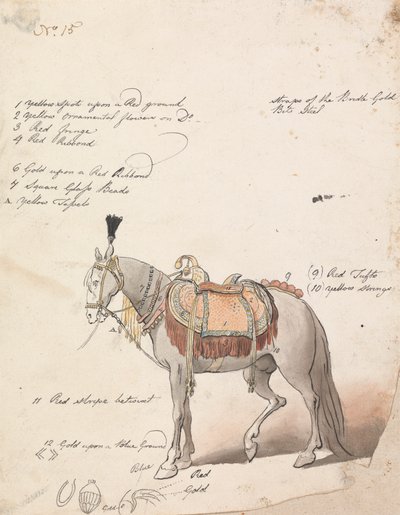 No 15
1 Yellow Spots upon a Red ground
2 Yellow Ornamental flower on Do
3 Red fringe
4 Red Ribbond
6 Gold upon a Red Ribbond
7 Square Glass Beads
A Yellow Tassels
Straps of the Bridle Gold
Bit Steel
9
(9) Red Tufts
(10) Yellow Strings
10
11 Red Stripe
12 Gold upon a Blue Ground
Blue
Red
Gold